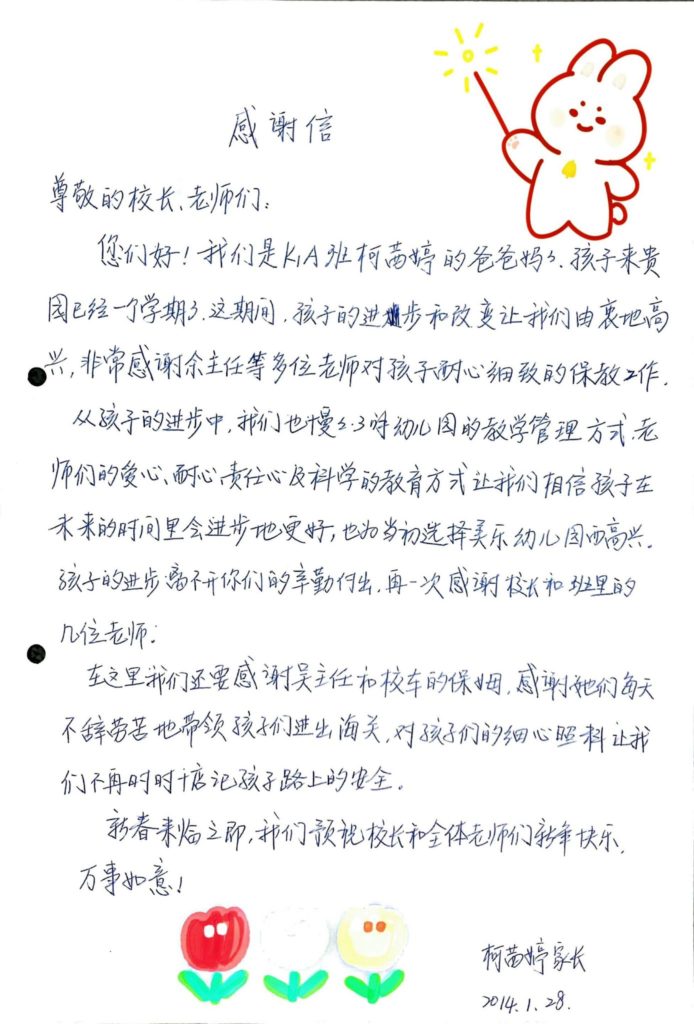 感谢信
尊敬的校长、老师们:
您们好!我们是K1A班柯茜婷的爸爸妈妈.孩子来贵
园已经一个学期了.这期间,孩子的进步和改变让我们由衷地高
兴,非常感谢余主任等多位老师对孩子耐心细致的保教工作.
从孩子的进步中,我们也慢慢了对幼儿园的教学管理方式.老
师们的爱心、耐心、责任心及科学的教育方式让我们相信孩子在
未来的时间里会进步地更好,也为当初选择美乐幼儿园而高兴.
孩子的进步离不开你们的辛勤付出,再一次感谢校长和班里的
几位老师:
在这里我们还要感谢吴主任和校车的保姆,感谢她们每天
不辞劳苦地带领孩子们进出海关,对孩子们的细心照料让我
们不再时时惦记孩子路上的安全.
新春来临之即,我们预祝校长和全体老师们新年快乐,
万事如意!
柯茜婷家长
2014.1.28.